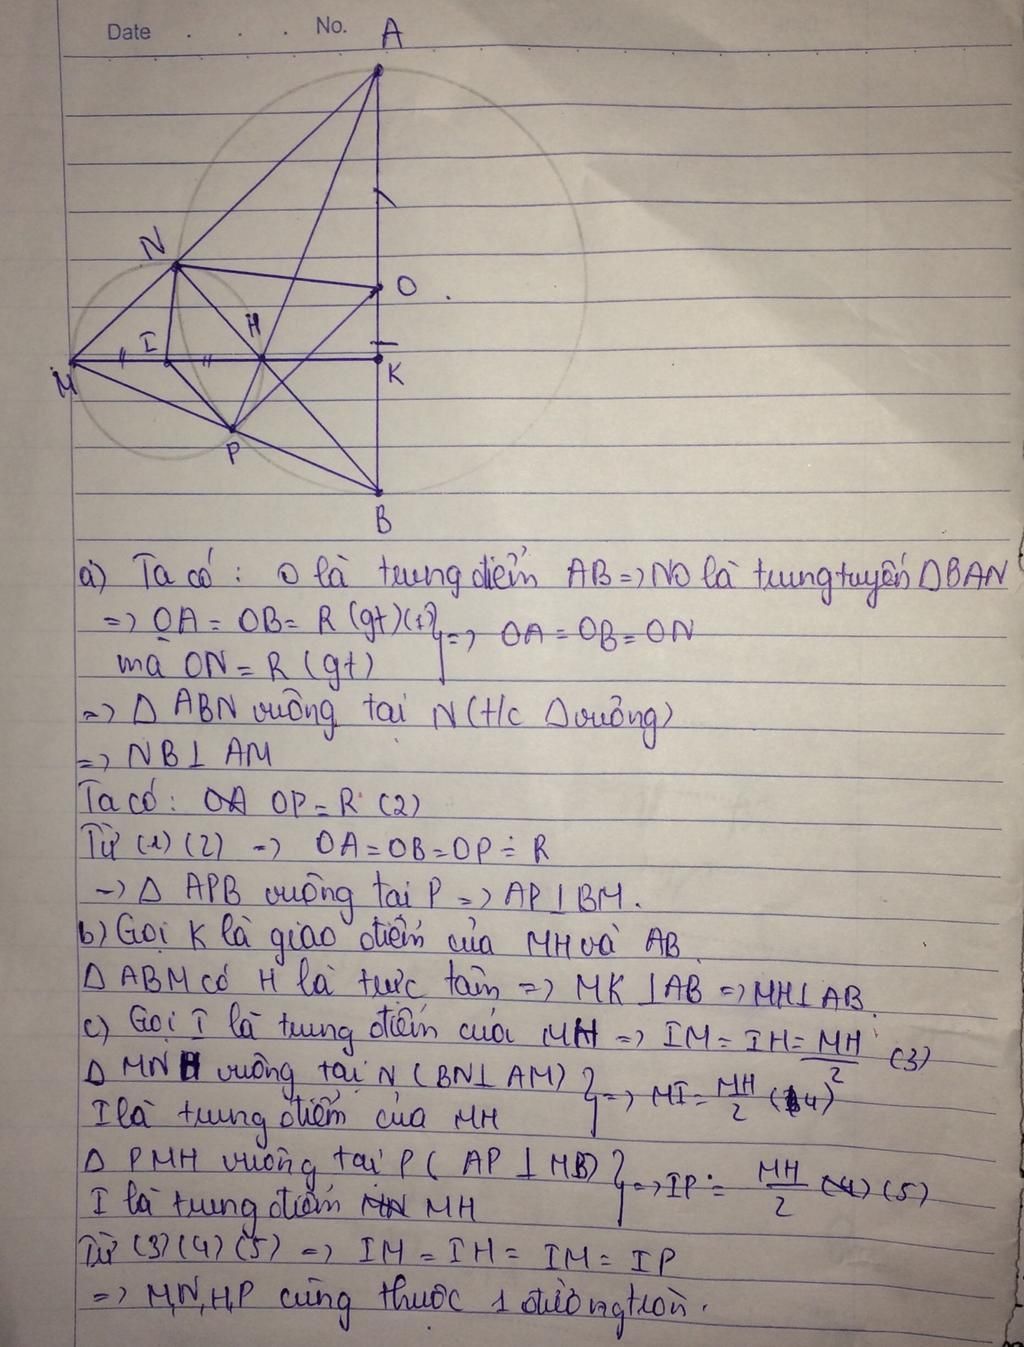 Date . . . No.
A
N
O
H
I
M
K
P
B
a) Ta có : O là trung điểm AB => NO là trung tuyến Δ BAN
=> OA = OB = R (gt) (1) } => OA = OB = ON
mà ON = R (gt)
=> Δ ABN vuông tại N (t/c Δ vuông)
=> NB ⊥ AM
Ta có : OA OP = R (2)
Từ (1) (2) => OA = OB = OP = R
=> Δ APB vuông tại P => AP ⊥ BM.
b) Gọi K là giao điểm của MH và AB
Δ ABM có H là trực tâm => MK ⊥ AB => MH ⊥ AB.
c) Gọi I là trung điểm của MH => IM = IH = MH/2 (3)
Δ MNH vuông tại N (BN ⊥ AM) } => MI = MH/2 (4)
I là trung điểm của MH
Δ PMH vuông tại P ( AP ⊥ MB) } => IP = MH/2 (4) (5)
I là trung điểm MN MH
Từ (3) (4) (5) => IM = IH = IM = IP
=> M, N, H, P cùng thuộc 1 đường tròn.